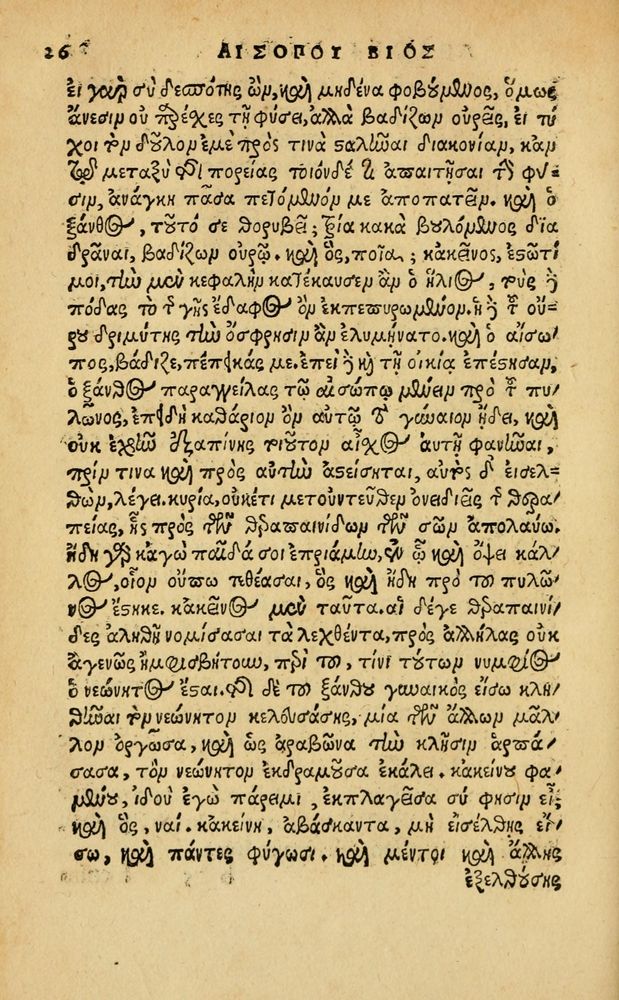 26 ΑΙΣΟΠΟΥ ΒΙΟΣ
εἰ γὰρ σὺ δεσπότης ὢν, καὶ μηδένα φοβούμενος, ὅμως
ἄνεσιν οὐ παρέχες τῇ φύσει, ἀλλὰ βαδίζων οὐρεῖς, εἰ τύ/
χοι τὸν δοῦλον ἐμὲ πρός τινα σταλῆναι διακονίαν, κἀν
τῷ μεταξὺ τῆς πορείας τοιόνδε τι ἀπαιτῆσαι τὴν φύ/
σιν, ἀνάγκη πᾶσα πετόμενόν με ἀποπατεῖν. καὶ ὁ
ξάνθος, τοῦτό σε θορυβεῖ; τρία κακὰ βουλόμενος δια
δρᾶναι, βαδίζων οὐρῶ. καὶ ὃς, ποῖα; κἀκεῖνος, ἑστῶτί
μοι, τὴν μὲν κεφαλὴν κατέκαυσεν ἂν ὁ ἥλιος, τοὺς δὲ
πόδας τὸ τῆς γῆς ἔδαφος ὂν ἐκπεπυρωμένον. ἡ δὲ τοῦ οὔ/
ρου δριμύτης τὴν ὄσφρησιν ἂν ἐλυμήνατο. καὶ ὁ αἴσω/
πος, βάδιζε, πέπεικάς με. ἐπεὶ δὲ καὶ τῇ οἰκίᾳ ἐπέστησαν,
ὁ ξάνθος παραγγείλας τῷ αἰσώπῳ μένειν πρὸ τοῦ πυ/
λῶνος, ἐπειδὴ καθάριον ὂν αὐτῷ τὸ γύναιον ᾔδει, καὶ
οὐκ ἐχρῆν ἐξαπίνης τοιοῦτον αἶχος αὐτῇ φανῆναι,
πρίν τινα καὶ πρὸς αὐτὴν ἀστείσηται, αὐτὸς δ' εἰσελ=
θὼν, λέγει. κυρία, οὐκέτι μετουντεῦθεν ὀνειδιεῖς τῆς θερα/
πείας, ἧς πρὸς τῶν θεραπαινίδων τῶν σῶν ἀπολαύω.
ἤδη γὰρ κἀγὼ παῖδά σοι ἐπριάμην, ἐν ᾧ καὶ ὄψει κάλ/
λος, οἷον οὔπω τεθέασαι, ὃς καὶ ἤδη πρὸ τοῦ πυλῶ/
νος ἕστηκε. κἀκεῖνος μὲν ταῦτα. αἱ δέγε θεραπαινί/
δες ἀληθῆ νομίσασαι τὰ λεχθέντα, πρὸς ἀλλήλας οὐκ
ἀγενῶς ἠμφισβήτουν, περὶ τοῦ, τίνι τούτων νυμφίος
ὁ νεώνητος ἔσται. τῆς δὲ τοῦ ξάνθου γυναικὸς εἴσω κλη/
θῆναι τὸν νεώνητον κελευσάσης, μία τῶν ἄλλων μᾶλ/
λον ὀργῶσα, καὶ ὡς ἀραβῶνα τὴν κλῆσιν ἁρπά/
σασα, τὸν νεώνητον ἐκδραμοῦσα ἐκάλει. κἀκείνου φα/
μένου, ἰδοὺ ἐγὼ πάρειμι, ἐκπλαγεῖσα σύ φησιν εἶ;
καὶ ὃς, ναί. κἀκείνη, ἀβάσκαντα, μὴ εἰσέλθῃς εἴ/
σω, καὶ πάντες φύγωσι. καὶ μέντοι καὶ ἄλλης
ἐξελθούσης